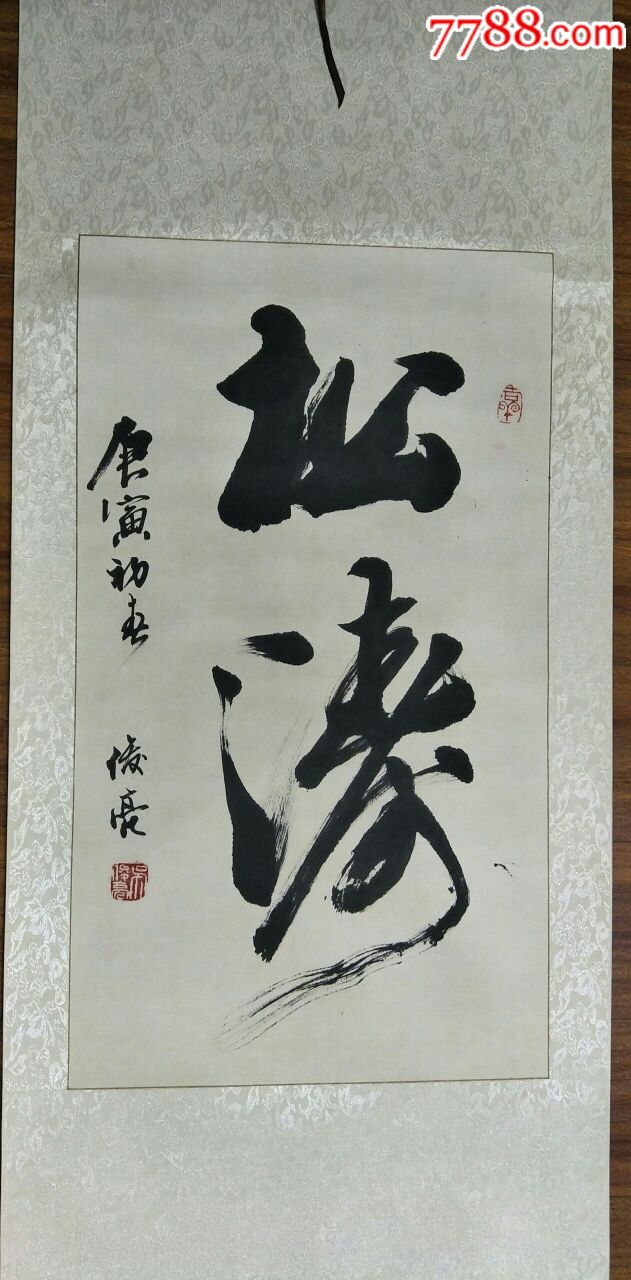 7788.com
松濤
庚寅初春
俊亮